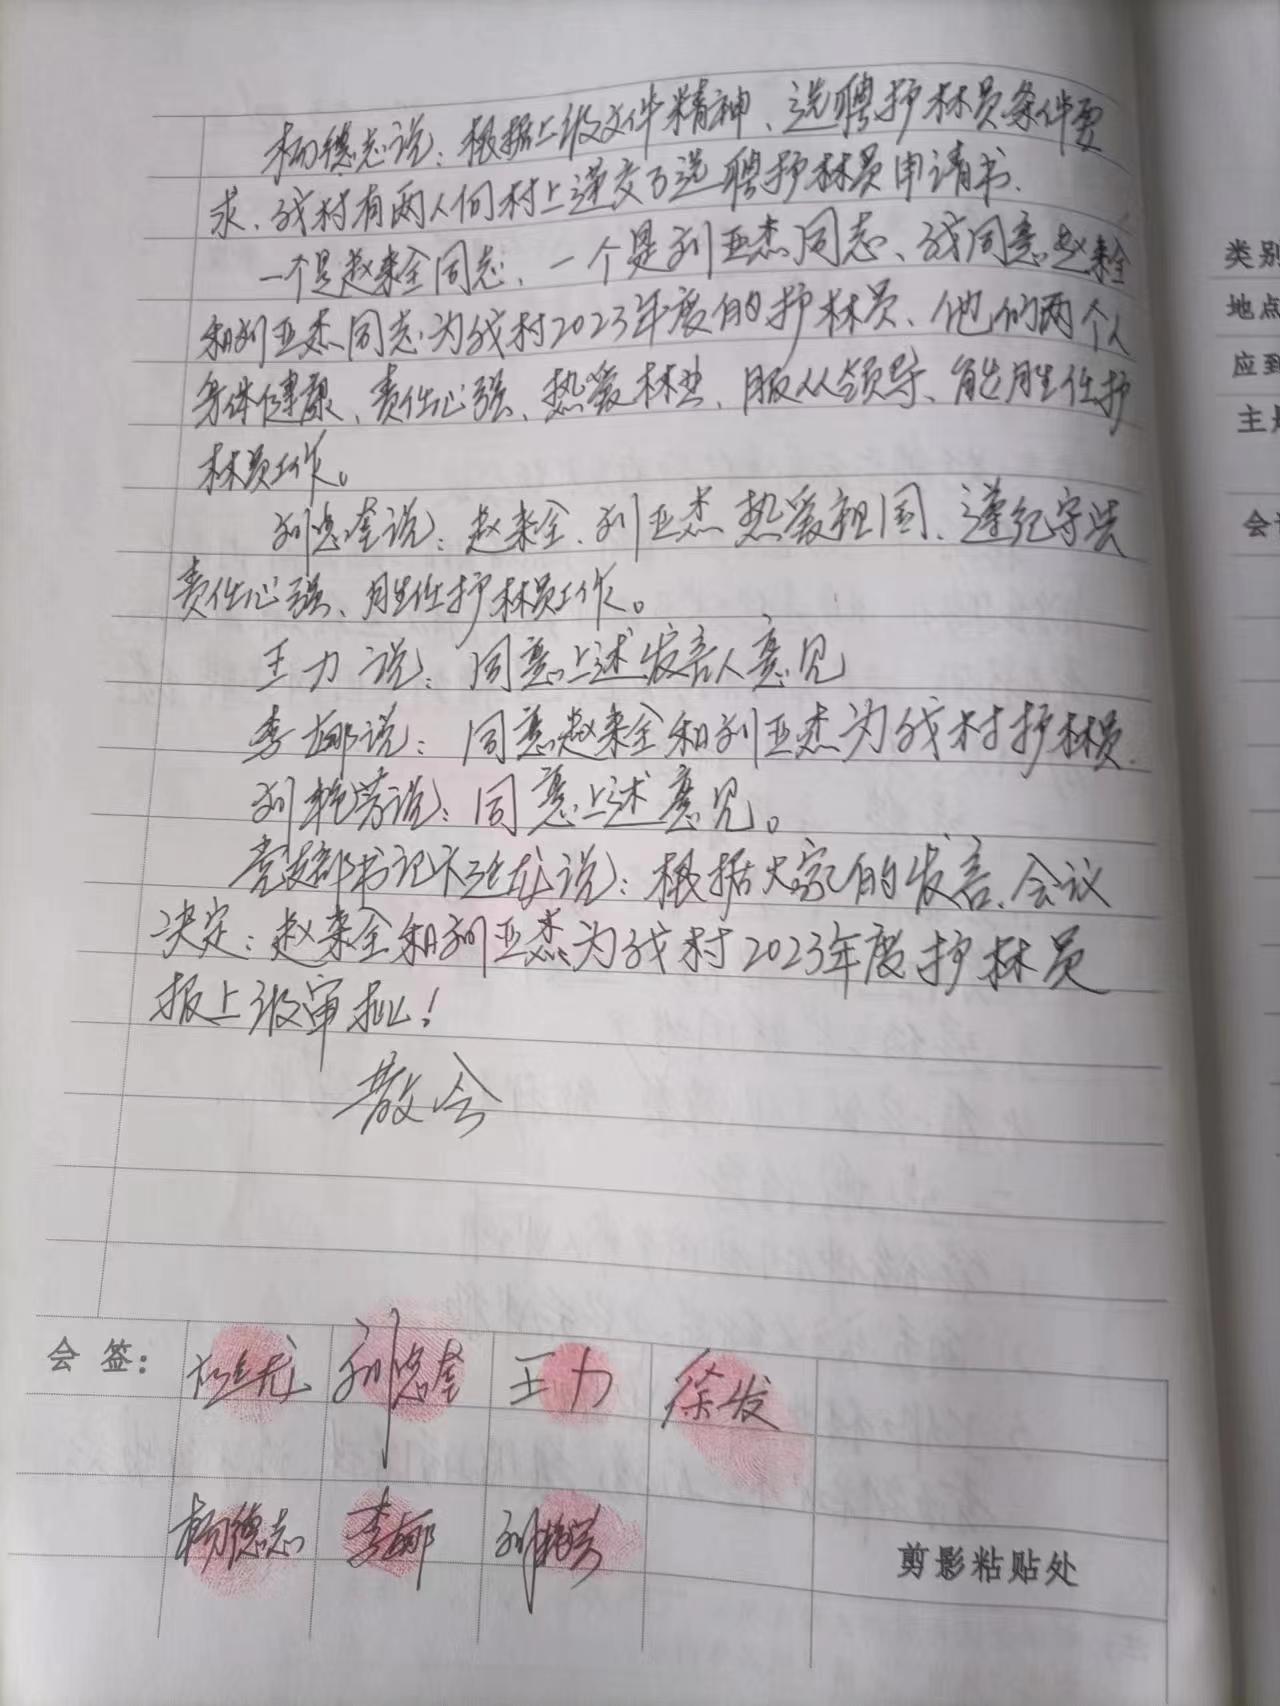 杨德志说：根据上级文件精神、选聘护林员条件要
求、我村有两人向村上递交了选聘护林员申请书.
一个是赵来全同志、一个是刘亚杰同志、我同意赵来全
和刘亚杰同志为我村2023年度的护林员、他们两个人
身体健康、责任心强、热爱林业、服从领导、能胜任护
林员工作。
刘忠奎说：赵来全、刘亚杰热爱祖国、遵纪守法
责任心强、胜任护林员工作。
王力说：同意上述发言人意见
李娜说：同意赵来全和刘亚杰为我村护林员.
刘艳芳说：同意上述意见。
党支部书记 说：根据大家的发言、会议
决定：赵来全和刘亚杰为我村2023年度护林员
报上级审批！
散会
会 签： 刘忠奎 王力 徐发
杨德志 李娜 刘艳芳
剪影粘贴处
类别
地点
应到
主
会